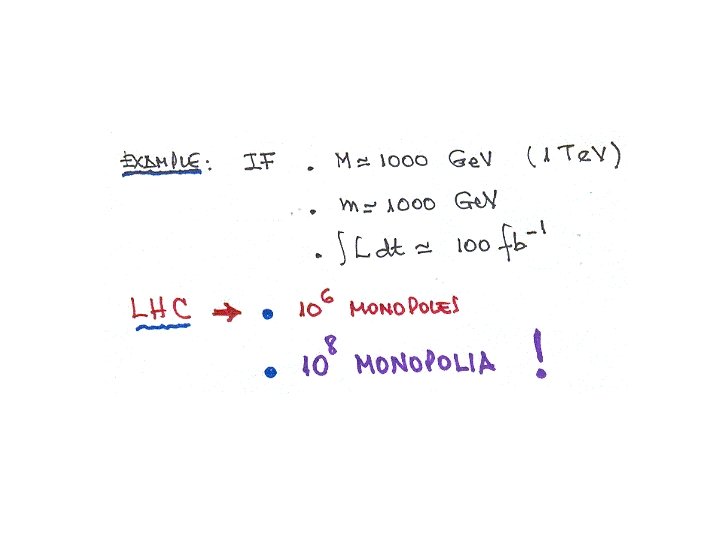 EXAMPLE: IF • M ≃ 1000 GeV (1 TeV)
• m ≃ 1000 GeV
• ∫ L dt ≃ 100 fb⁻¹
LHC → • 10⁶ MONOPOLES
• 10⁸ MONOPOLIA !